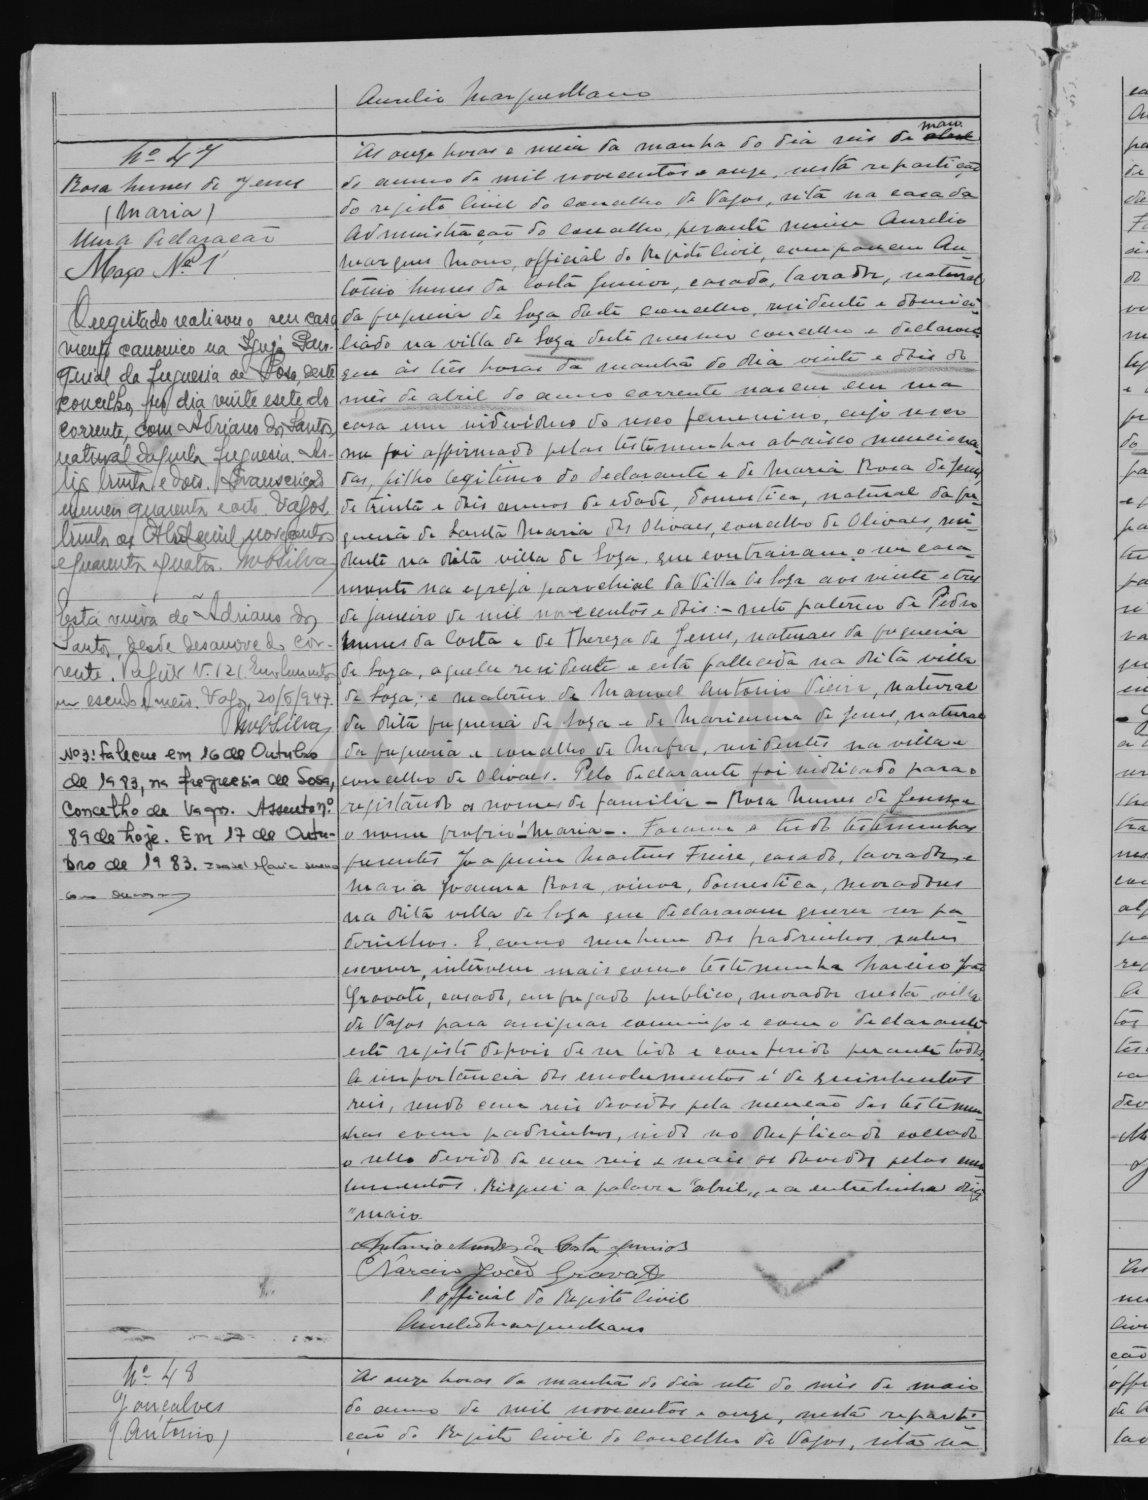 Aurelio Marques Mano
Nº 47
Rosa Nunes de Jesus
(Maria)
Uma declaração
Maço Nº 1
O registado realisou o seu casa
mento canonico na Igreja Paro-
quial da freguesia de Sosa, deste
concelho, no dia vinte e sete do
corrente, com Adriano dos Santos,
natural daquela freguesia. As-
trinta e dois. Transcrição
numero quarenta e oito. Vagos,
trinta de Abril de mil novecentos
e quarenta e quatro. MobSilva
Está viuva de Adriano dos
Santos, desde desanove do cor-
rente. Vagos Nº 121. Emolumentos
um escudo e meio. Vagos, 20/5/947.
MobSilva
Nº 3: Faleceu em 16 de Outubro
de 1983, na freguesia de Sosa,
Concelho de Vagos. Assento nº
89 de hoje. Em 17 de Outu-
bro de 1983.
As onze horas e meia da manha do dia seis de abril maio
do anno de mil novecentos e onze, nesta repartição
do registo civil do concelho de Vagos, sita na casa da
Administração do concelho, perante mim Aurelio
Marques Mano, official do Registo Civil, compareceu An-
tonio Nunes da Costa Junior, casado, lavrador, natural
da freguesia de Soza deste concelho, residente e domici-
liado na villa de Soza deste mesmo concelho e declarou
que às tres horas da manhã do dia vinte e dois do
mês de abril do anno corrente nasceu em sua
casa um individuo do sexo femenino, cujo sexo
me foi affirmado pelas testemunhas abaixo menciona-
das, filho legitimo do declarante e de Maria Rosa de Jesus,
de trinta e dois annos de edade, domestica, natural da fre-
guesia de Santa Maria dos Olivaes, concelho de Olivaes, resi-
dente na dita villa de Soza, que contrairam o seu casa-
mento na egreja parochial da Villa de Soza aos vinte e tres
de Janeiro de mil novecentos e dois: - neto paterno de Pedro
Nunes da Costa e de Thereza de Jesus, naturaes da freguesia
de Soza, aquelle residente e esta fallecida na dita villa
de Soza; e materno de Manuel Antonio Vieira, natural
da dita freguesia de Soza e de Marianna de Jesus, natural
da freguesia e concelho de Mafra, residentes na villa e
concelho de Olivaes. Pelo declarante foi indicado para o
registando os nomes de familia - Rosa Nunes de Jesus, e
o nome proprio - Maria -. Foram a tudo testemunhas
presentes Joaquim Martins Freire, casado, lavrador, e
Maria Joanna Rosa, viuva, domestica, moradores
na dita villa de Soza que declararam querer ser pa
drinhos. E, como nenhum dos padrinhos, sabe
escrever, interveiu mais como testemunha Narciso João
Gravato, casado, empregado publico, morador nesta villa
de Vagos para assignar commigo e com o declarante
este registo depois de ser lido e conferido perante todos.
A importancia dos emolumentos é de quinhentos
reis, sendo cem reis devidos pela menção das testemu-
nhas como padrinhos, indo no duplicado collado
o sello devido de cem reis e mais os devidos pelos emo
lumentos. Risquei a palavra "abril" e a entrelinha diz
"maio
Antonio Nunes da Costa Junior
Narciso João Gravato
O official do Registo Civil
Aurelio Marques Mano
Nº 48
Gonçalves
(Antonio)
As onze horas da manhã do dia sete do mês de maio
do anno de mil novecentos e onze, nesta reparti-
ção do Registo Civil do concelho de Vagos, sita na